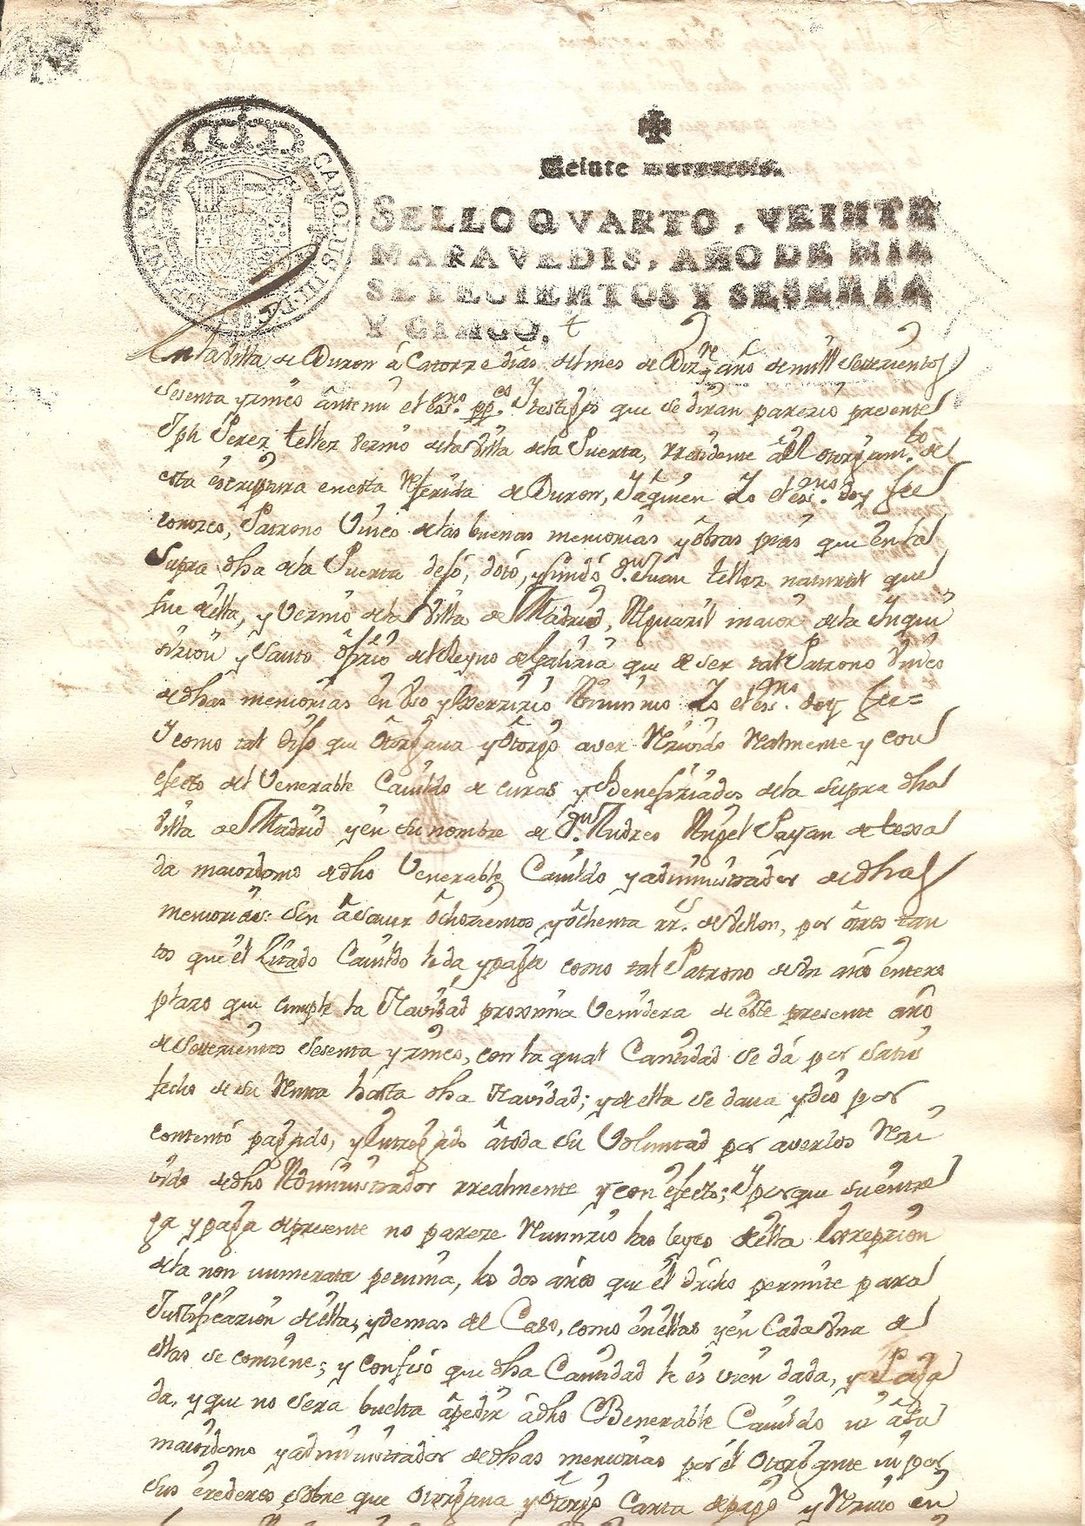 CAROLUS III D G HISPANIAR REX
Veinte maravedis.
SELLO QVARTO, VEINTE
MARAVEDIS, AÑO DE MIL
SETECIENTOS Y SESENTA
Y CINCO.
En la Villa de Duron â Catorze dias del mes de Diz.re año de mill Setezientos
sesenta y zinco ante mi el ess.no pp.co y testigos que se diran parezio presente
Jph Perez tellez vezino de la Villa de la Puerta, residente âel otorgam.to de
esta escriptura en esta referida de Duron, Y aquien Yo el ess.no doy fee
conozco, Patrono Unico de las buenas memorias y obras pias que en la
Supra dha de la Puerta dejó, dotó, y fundó d.n Juan tellez natural que
fue de ella, y Vezino de la Villa de Madrid, Alguazil maior de la Inqui
sizion y Santo ofizio del Reyno de Galizia que de ser tal Patrono Unico
de dhas memorias en Uso y Exerzizio Yo el ess.no doy fee=
Y como tal dijo que otorgava y otorgó aver Rezivido Realmente y con
efecto del Venerable Cavildo de curas y Benefiziados de la supra dha
Villa de Madrid y en su nombre de d.n Andres Angel Payan de texa
da maiordomo de dho Venerable Cavildo y administrador de dhas
memorias: Son â saver ochozientos y ôchenta rr.s de Vellon, por ôtros tan
tos que el Zitado Cavildo le da, y paga como tal Patrono de Un año entero
plazo que cumple la Navidad proxima Venidera de este presente año
de Setezientos Sesenta y zinco, con la qual Cantidad se dá por satis
fecho de su Renta hasta dha Navidad; y de ella se dava y dió por
contento pagado, y Entregado â toda su Voluntad por averlos Rezi
vido de dho Administrador rrealmente y con efecto; Y porque su entre
ga y paga de presente no pareze Renunzió las leyes de ella Exzepzion
de la non numerata pecunia, los dos años que el dro permite para
Justificazion de ella, y demas del Caso, como en ellas y en Cada Una de
ellas se contiene; y confesó que dha Cantidad le es vien dada, y Paga
da, y que no sera buelta â pedir â dho Benerable Cavildo ni â su
maiordomo y administrador de dhas memorias por él otorgante ni por
sus erederos sobre que otorgava y otorgó Carta de pago y Rezivo en